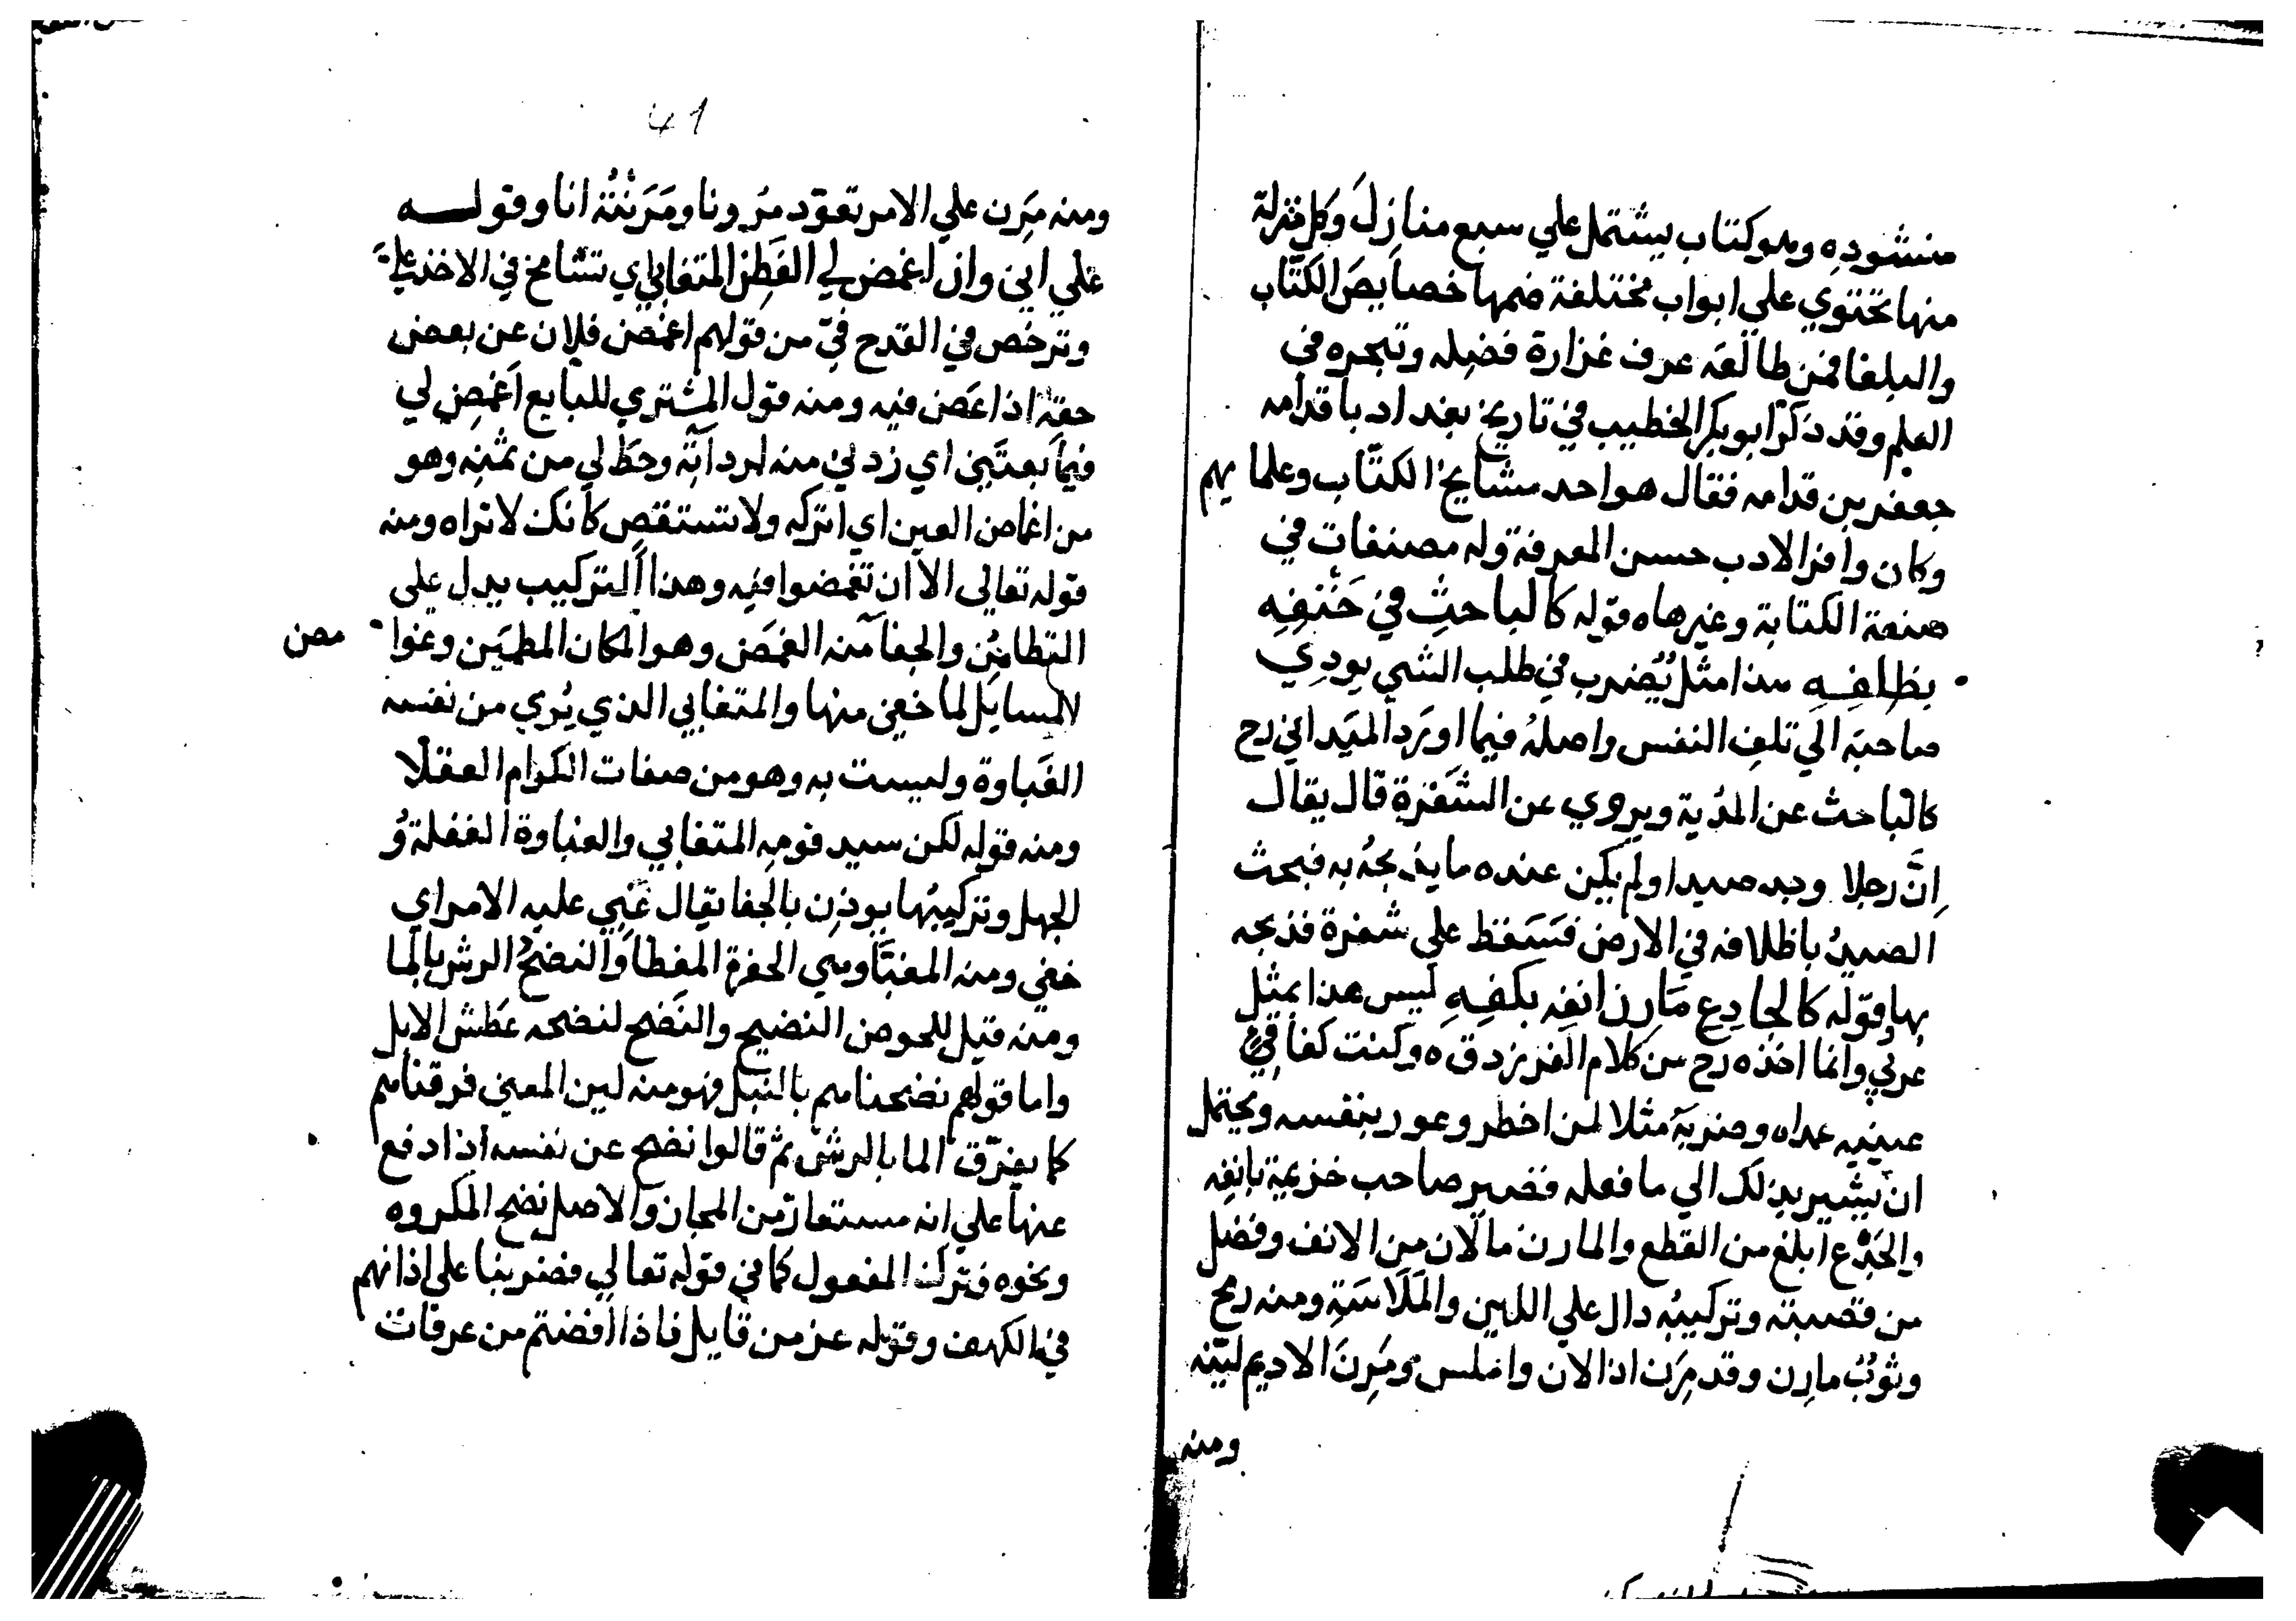 منشوده وهو كتاب يشتمل علي سبع منازل وكل منزلة
منها تحتوي علي ابواب مختلفة ضمها خصايص الكتاب
والبلغا فمن طالعه عرف غزارة فضله وتبحره في
العلم وقد ذكر ابو بكر الخطيب في تاريخ بغداد با قدامه
جعفر بن قدامه فقال هو احد مشايخ الكتاب وعلمايهم
وكان وافر الادب حسن المعرفة وله مصنفات في
صنعة الكتابة وغيرها ه قوله كالباحث في حتفه
بظلفه هذا مثل يضرب في طلب الشي يودي
صاحبه الي تلف النفس واصله فيما اورد الميداني رح
كالباحث عن المدية ويروي عن الشفرة قال يقال
ان رجلا وجد صيدا ولم يكن عنده ما يذبحه به فبحث
الصيد باظلافه في الارض فسقط علي شفرة فذبحه
بها وقوله كالجادع مارن انفه بكفه ليس هذا بمثل
عربي وانما اخذه رح من كلام الفرزدق ه وكنت كفاقئ
عينيه عداه وضربه مثلا لمن اخطر وعور بنفسه ويحتمل
ان يشير بذلك الي ما فعله قصير صاحب خزيمة بانفه
والجدع ابلغ من القطع والمارن ما لان من الانف وفضل
من قصبته وتركيبه دال علي اللين والملاسة ومنه رمح
وثوب مارن وقد مرن اذا لان واملس ومرن الاديم لينه
ومنه
41
ومنه مرن علي الامر تعود مرونا ومرنته انا وقولـــه
علي اني وان اغمض لي الفطن المتغابي اي تسامح في الاخذ علي
وترخص في القدح في من قولهم اغمض فلان عن بعض
حقه اذا غمض فيه ومنه قول المشتري للبايع اغمض لي
فيما بعتني اي زدني منه لرداته وحط لي من ثمنه وهو
من اغماض العين اي اتركه ولا تستقص كانك لا تراه ومنه
قوله تعالي الا ان تغمضوا فيه وهذا التركيب يدل علي
التطامن والخفا منه الغمض وهو المكان المطمين وغوا مض
المسايل لما خفي منها والمتغابي الذي يري من نفسه
الغباوة وليست به وهو من صفات الكرام العقلا
ومنه قوله لكن سيد قومه المتغابي والغباوة الغفلة و
الجهل وتركيبها يوذن بالخفا يقال غبي عليه الامر اي
خفي ومنه المغباة وهي الحفرة المغطاة والنضح الرش بالما
ومنه قيل للحوض النضيح والنضح لنضحه عطش الابل
واما قولهم نضحناهم بالنبل فهو منه لين المعني فرقناهم
كما يفرق الما بالرش ثم قالوا نضح عن نفسه اذا دفع
عنها علي انه مستعار من المجاز والاصل نضح المكروه
ونحوه فترك المفعول كما في قوله تعالي فضربنا علي اذانهم
في الكهف وقوله عز من قايل فاذا افضتم من عرفات